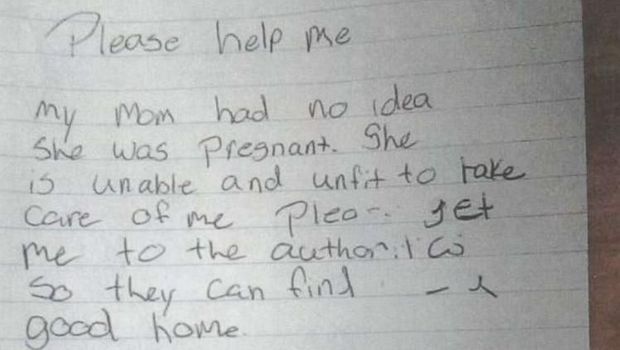 Please help me
My mom had no idea
She was Pregnant. She
is unable and unfit to take
Care of me get
me to the authorities
So they can find
good home.